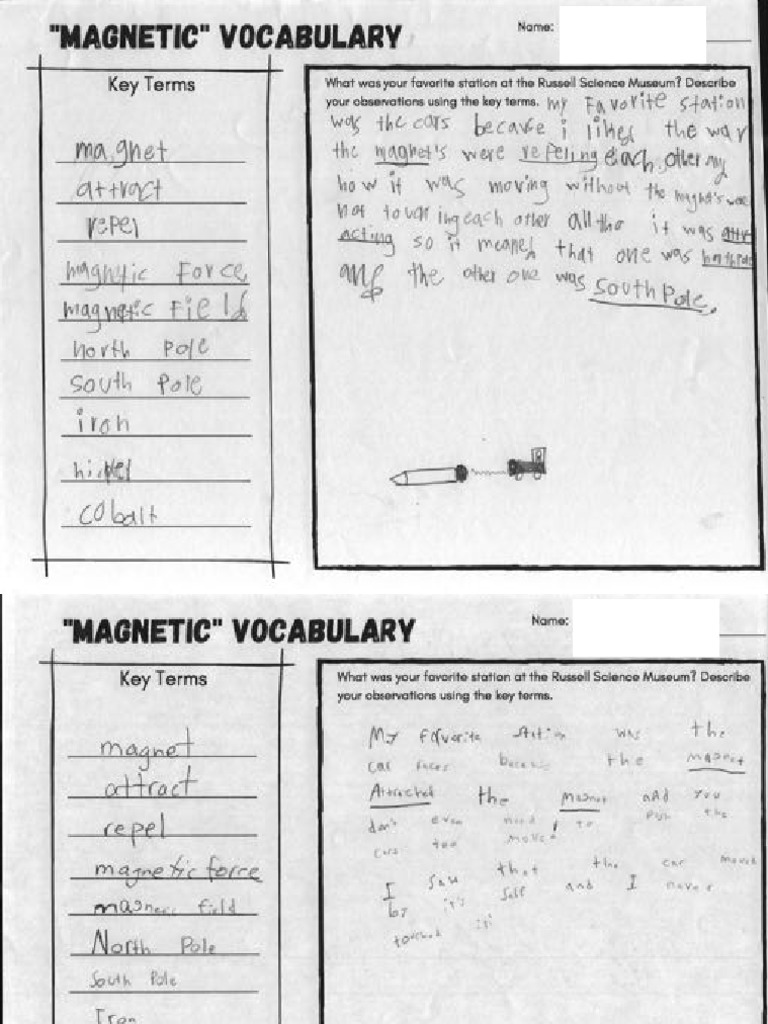 "MAGNETIC" VOCABULARY
Name:
Key Terms
magnet
attract
repel
magnytic Force
magnetic Field
north pole
south pole
iron
nickel
cobalt
What was your favorite station at the Russell Science Museum? Describe
your observations using the key terms. my Favorite station
was the cars because i likes the way
the magnet's were repeling each other
how it was moving without the maght's
not each other all tho it was attr
acting so it meanes that one was
and the other one was South Pole.
"MAGNETIC" VOCABULARY
Name:
Key Terms
magnet
attract
repel
magnetic force
magnetic field
North Pole
South Pole
Iron
What was your favorite station at the Russell Science Museum? Describe
your observations using the key terms.
My favorite station was the
car races because the magnet
Attracted the magnet and you
don't even need to push the
cars too move!
I saw that the car moved
by it's self and I never
touched it!